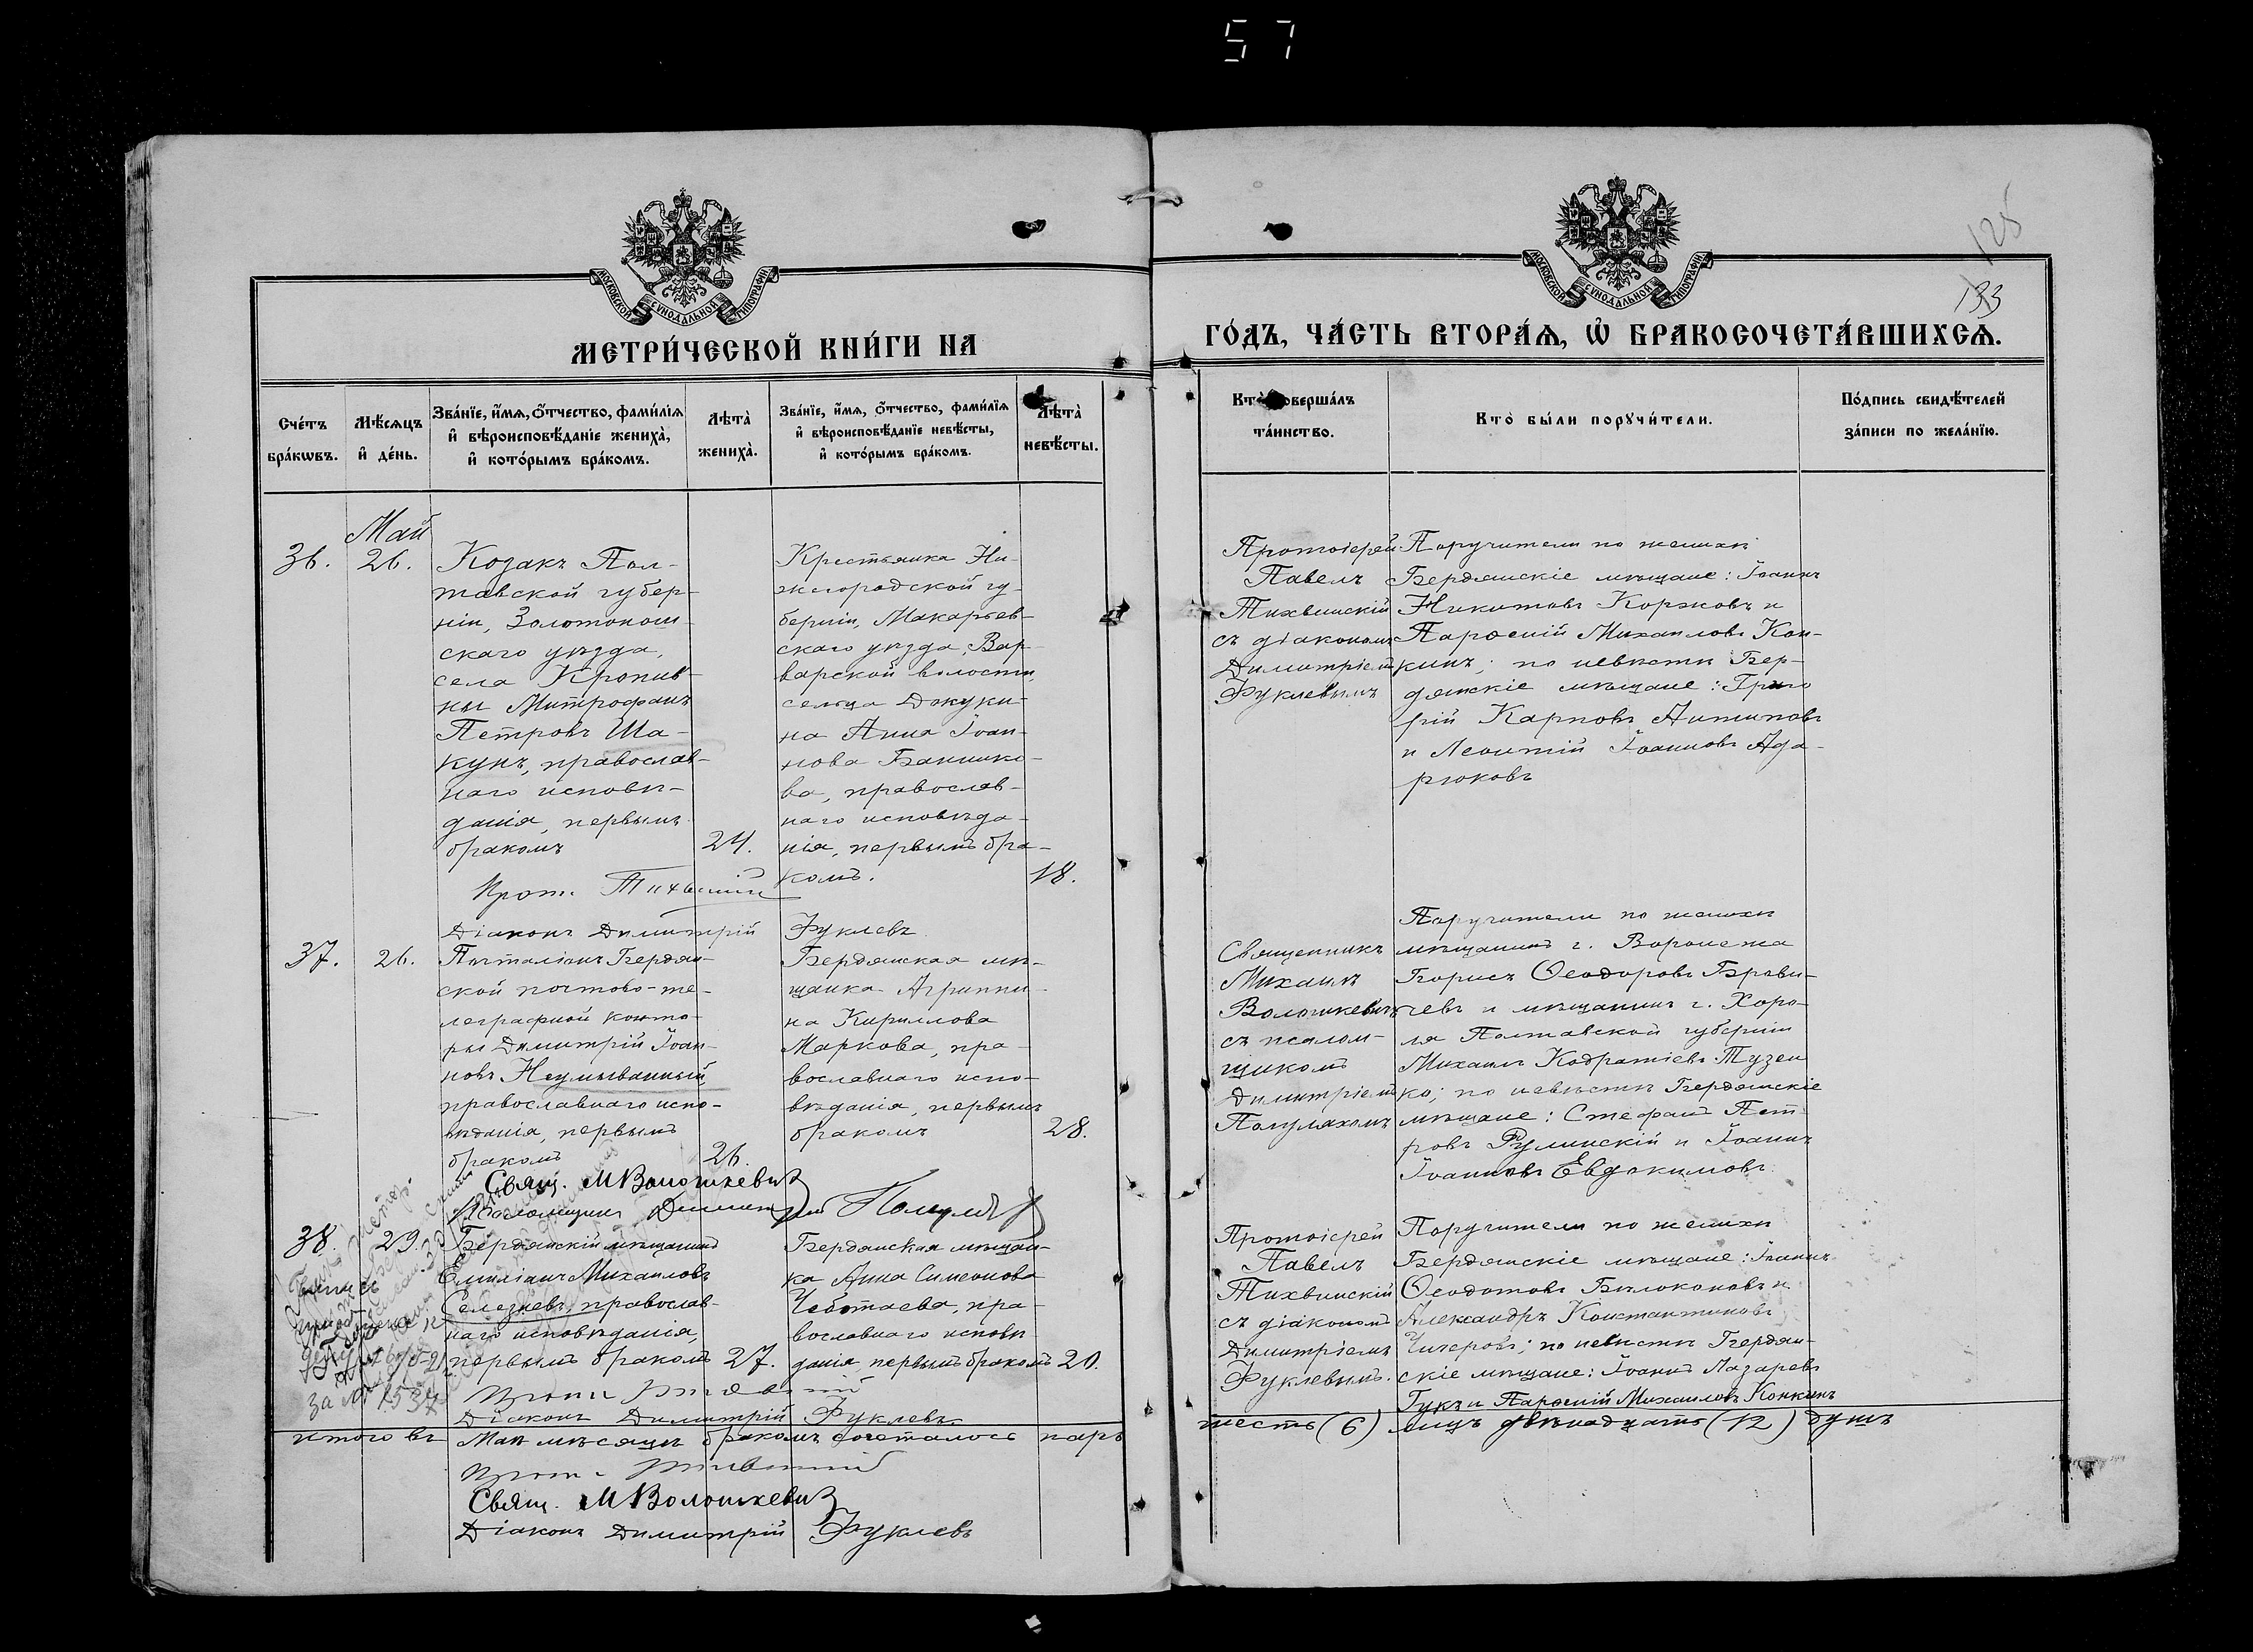 57
125
133
МОСКОВСКОЙ СѴНОДАЛЬНОЙ ТИПОГРАФІИ
МОСКОВСКОЙ СѴНОДАЛЬНОЙ ТИПОГРАФІИ
МЕТРИ́ЧЕСКОЙ КНИ́ГИ НА
ГО́ДЪ, ЧА́СТЬ ВТОРА́Ѧ, Ѡ҆ БРАКОСОЧЕТА́ВШИХСѦ.
Сче́тъ бра́кѡвъ.
Мѣ́сѧцъ и҆ де́нь.
Зва́нїе, и҆́мѧ, ѻ҆́тчество, фами́лїѧ
и҆ вѣроисповѣ́данїе жениха̀,
и҆ кото́рымъ бра́комъ.
Лѣта̀ жениха̀.
Зва́нїе, и҆́мѧ, ѻ҆́тчество, фами́лїѧ
и҆ вѣроисповѣ́данїе невѣ́сты,
и҆ кото́рымъ бра́комъ.
Лѣта̀ невѣ́сты.
Кто̀ соверша́лъ та́инство.
Кто̀ бы́ли порꙋчи́тели.
По́дпись свидѣ́телей
за́писи по жела́нїю.
Май
36.
26.
Козакъ Пол-
тавской губер-
ніи, Золотонош-
скаго уѣзда,
села Кропив-
ны Митрофанъ
Петровъ Ша-
кунъ, православ-
наго исповѣ-
данія, первымъ
бракомъ
24.
Крестьянка Ни-
жегородской гу-
берніи, Макарьев-
скаго уѣзда, Вар-
варской волости,
сельца Докуки-
на Анна Іоан-
нова Баннико-
ва, православ-
наго исповѣда-
нія, первымъ бра-
комъ.
18.
Протоіерей
Павелъ
Тихвинскій
съ діакономъ
Димитріемъ
Фуклевымъ
Поручители по женихѣ
Бердянскіе мѣщане: Іоаннъ
Никитовъ Коржовъ и
Парѳеній Михаиловъ Кон-
кинъ; по невѣстѣ Бер-
дянскіе мѣщане: Григо
рій Карповъ Антиповъ
и Леонтій Іоанновъ Ада-
рюковъ
Прот. Тихвинскій
Діаконъ Димитрій Фуклевъ
37.
26.
Почталіонъ Бердян-
ской почтово-те-
леграфной конто-
ры Димитрій Іоан-
новъ Неумыванный,
православнаго испо-
вѣданія, первымъ
бракомъ
26.
Бердянская мѣ-
щанка Агриппи-
на Кириллова
Маркова, пра-
вославнаго испо-
вѣданія, первымъ
бракомъ
28.
Священникъ
Михаилъ
Волошкевичъ
съ псалом-
щикомъ
Димитріемъ
Популяхомъ
Поручители по женихѣ
мѣщанинъ г. Воронежа
Борисъ Ѳеодоровъ Брави-
чевъ и мѣщанинъ г. Хоро-
ля Полтавской губерніи
Михаилъ Кодратіевъ Тузен
ко; по невѣстѣ Бердянскіе
мѣщане: Стефанъ Пет-
ровъ Руминскій и Іоаннъ
Іоанновъ Евдокимовъ.
Свящ. М Волошкевич
Псаломщикъ Димитрій
38.
29.
Бердянскій мѣщанинъ
Емиліанъ Михаиловъ
Селезневъ, православ-
наго исповѣданія,
первымъ бракомъ
27.
Бердянская мѣщан-
ка Анна Симеонова
Чеботаева, пра-
вославнаго исповѣ
данія, первымъ бракомъ
20.
Протоіерей
Павелъ
Тихвинскій
съ діакономъ
Димитріемъ
Фуклевымъ.
Поручители по женихѣ
Бердянскіе мѣщане: Іоаннъ
Ѳеодотовъ Бѣлоконовъ и
Александръ Константиновъ
Чигеровъ; по невѣстѣ Бердян-
скіе мѣщане: Іоаннъ Лазаревъ
Гукъ и Парѳеній Михаиловъ Конкинъ
за № 1537
Діаконъ Димитрій Фуклевъ
итого въ Маѣ мѣсяцѣ бракомъ сочеталось паръ шесть (6) лицъ двѣнадцать (12) душъ
Свящ. М Волошкевич
Діаконъ Димитрій Фуклевъ